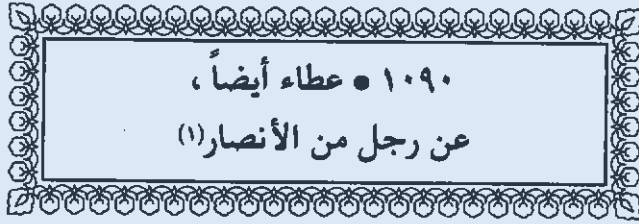 ١٠٩٠ • عطاء أيضاً ،
عن رجل من الأنصار(١)